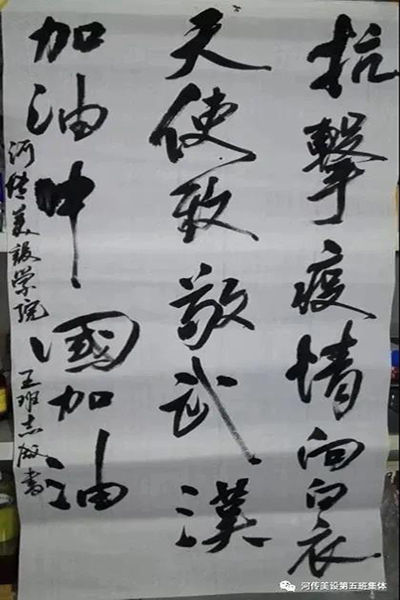 抗擊疫情向白衣
天使致敬武漢
加油中國加油
河传美設学院
王班志成書
河传美设第五班集体